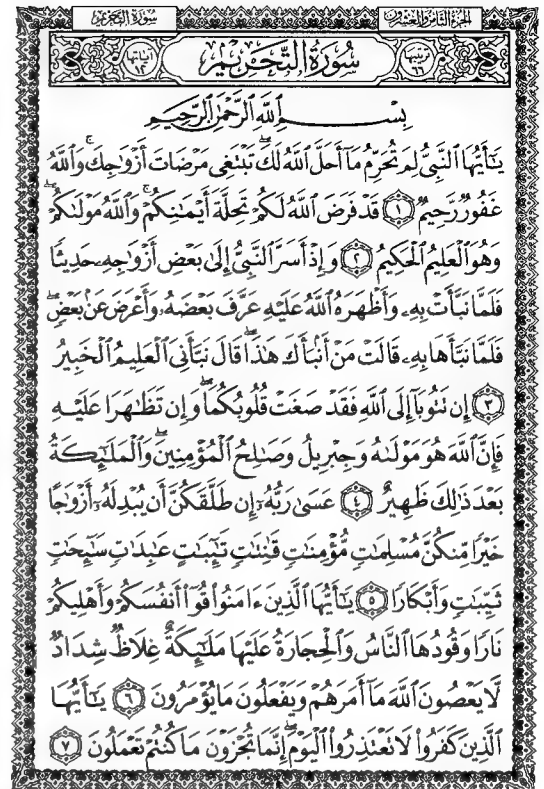 سُورَةُ التَّحْرِيمِ الجُزْءُ الثَّامِنُ وَالعِشْرُونَ
ترتيبها ٦٦ سُورَةُ التَّحْرِيمِ آياتها ١٢
بِسْمِ اللَّهِ الرَّحْمَٰنِ الرَّحِيمِ
يَٰٓأَيُّهَا ٱلنَّبِىُّ لِمَ تُحَرِّمُ مَآ أَحَلَّ ٱللَّهُ لَكَۖ تَبْتَغِى مَرْضَاتَ أَزْوَٰجِكَۚ وَٱللَّهُ
غَفُورٌ رَّحِيمٌ ١ قَدْ فَرَضَ ٱللَّهُ لَكُمْ تَحِلَّةَ أَيْمَٰنِكُمْۚ وَٱللَّهُ مَوْلَىٰكُمْۖ
وَهُوَ ٱلْعَلِيمُ ٱلْحَكِيمُ ٢ وَإِذْ أَسَرَّ ٱلنَّبِىُّ إِلَىٰ بَعْضِ أَزْوَٰجِهِۦ حَدِيثًا
فَلَمَّا نَبَّأَتْ بِهِۦ وَأَظْهَرَهُ ٱللَّهُ عَلَيْهِ عَرَّفَ بَعْضَهُۥ وَأَعْرَضَ عَنۢ بَعْضٍۖ
فَلَمَّا نَبَّأَهَا بِهِۦ قَالَتْ مَنْ أَنۢبَأَكَ هَٰذَاۖ قَالَ نَبَّأَنِىَ ٱلْعَلِيمُ ٱلْخَبِيرُ
٣ إِن تَتُوبَآ إِلَى ٱللَّهِ فَقَدْ صَغَتْ قُلُوبُكُمَاۖ وَإِن تَظَٰهَرَا عَلَيْهِ
فَإِنَّ ٱللَّهَ هُوَ مَوْلَىٰهُ وَجِبْرِيلُ وَصَٰلِحُ ٱلْمُؤْمِنِينَۖ وَٱلْمَلَٰٓئِكَةُ
بَعْدَ ذَٰلِكَ ظَهِيرٌ ٤ عَسَىٰ رَبُّهُۥٓ إِن طَلَّقَكُنَّ أَن يُبْدِلَهُۥٓ أَزْوَٰجًا
خَيْرًا مِّنكُنَّ مُسْلِمَٰتٍ مُّؤْمِنَٰتٍ قَٰنِتَٰتٍ تَٰٓئِبَٰتٍ عَٰبِدَٰتٍ سَٰٓئِحَٰتٍ
ثَيِّبَٰتٍ وَأَبْكَارًا ٥ يَٰٓأَيُّهَا ٱلَّذِينَ ءَامَنُوا۟ قُوٓا۟ أَنفُسَكُمْ وَأَهْلِيكُمْ
نَارًا وَقُودُهَا ٱلنَّاسُ وَٱلْحِجَارَةُ عَلَيْهَا مَلَٰٓئِكَةٌ غِلَاظٌ شِدَادٌ
لَّا يَعْصُونَ ٱللَّهَ مَآ أَمَرَهُمْ وَيَفْعَلُونَ مَا يُؤْمَرُونَ ٦ يَٰٓأَيُّهَا
ٱلَّذِينَ كَفَرُوا۟ لَا تَعْتَذِرُوا۟ ٱلْيَوْمَۖ إِنَّمَا تُجْزَوْنَ مَا كُنتُمْ تَعْمَلُونَ ٧